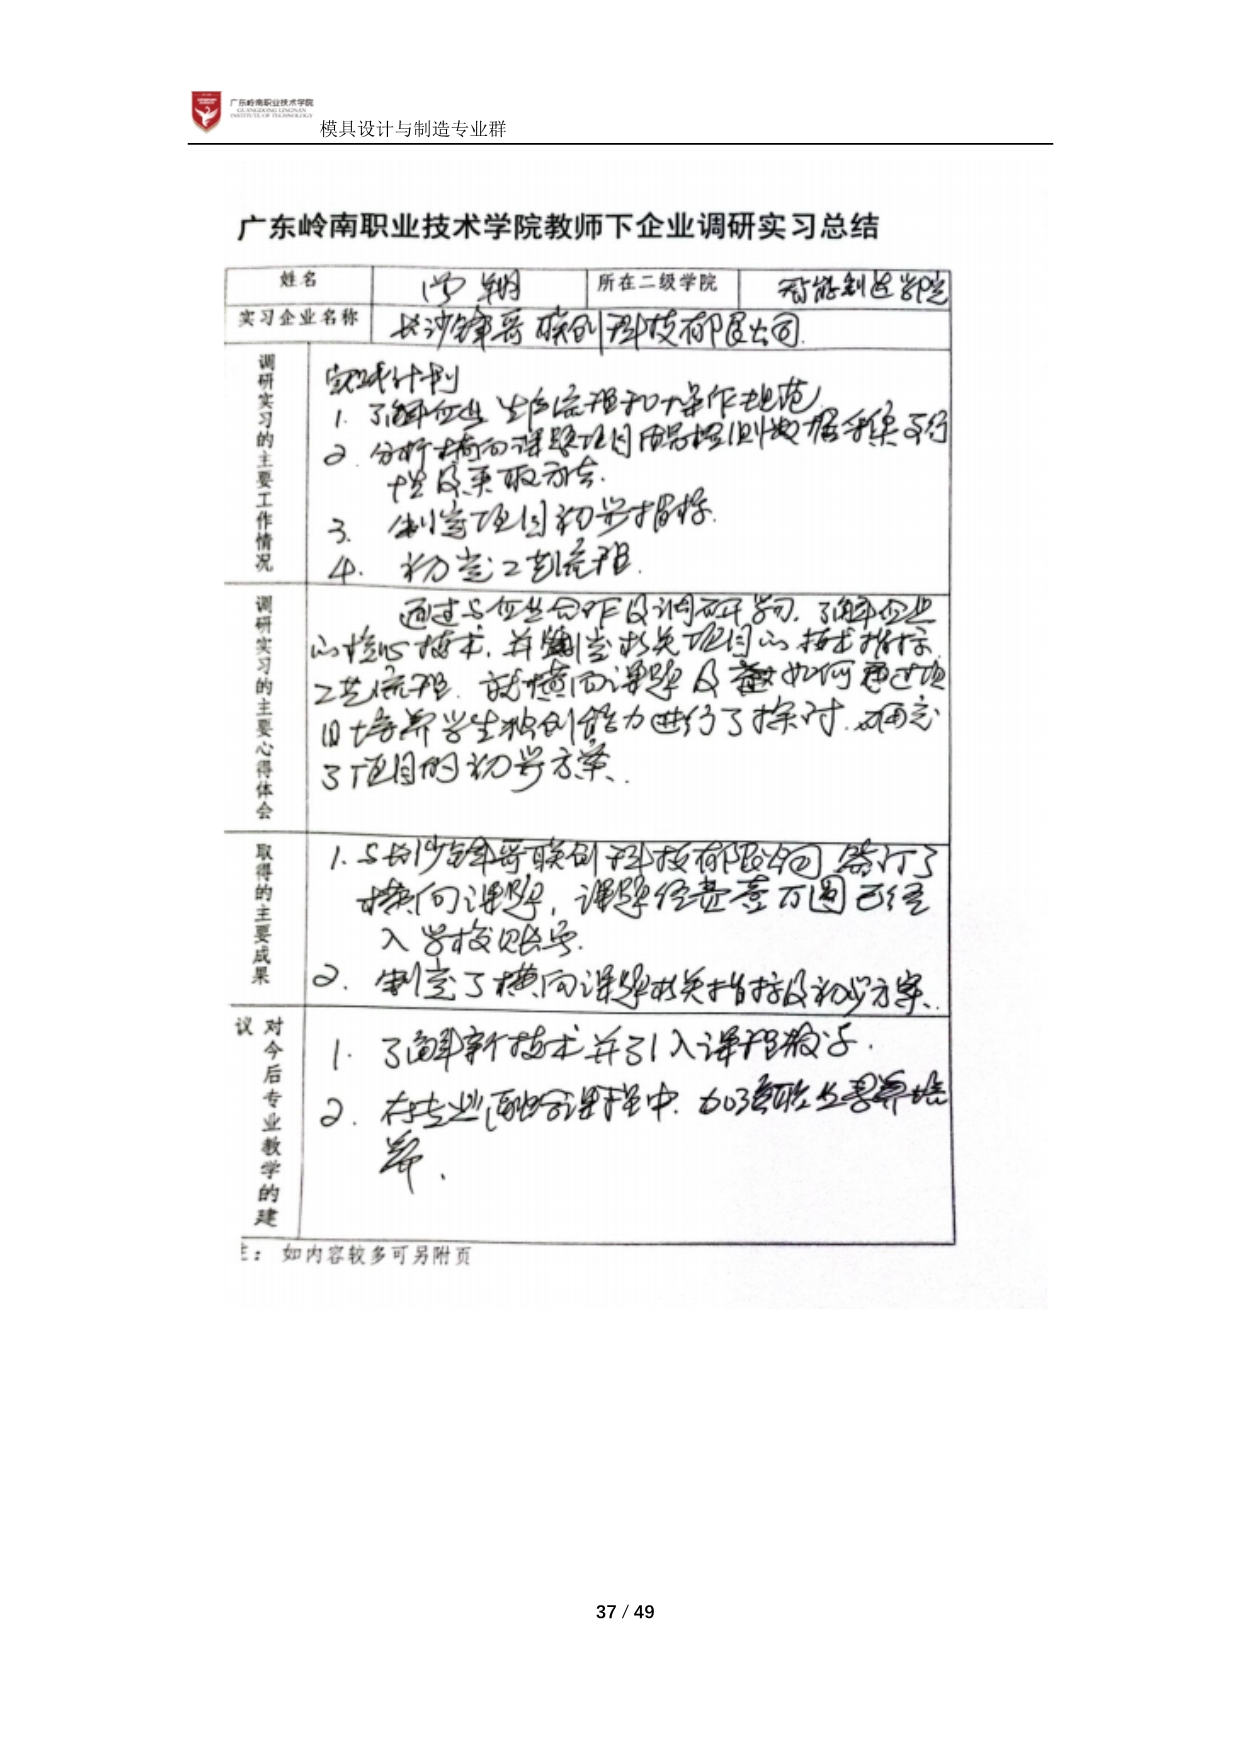 广东岭南职业技术学院
GUANGDONG LINGNAN
INSTITUTE OF TECHNOLOGY
模具设计与制造专业群
广东岭南职业技术学院教师下企业调研实习总结
姓名 翱 所在二级学院 智能制造学院
实习企业名称 长沙锋哥联创科技有限公司.
调研实习的主要工作情况
计划
1. 了解企业生产流程和操作规范.
2. 分析横向课题项目产品检测数据采集可行
性及采取方法.
3. 制定项目初步指标.
4. 初定工艺流程.
调研实习的主要心得体会
通过与企业合作及调研学习,了解企业
的核心技术,并制定相关项目的技术指标,
工艺流程. 就横向课题及如何通过项
目培养学生独创能力进行了探讨.确定
了项目的初步方案.
取得的主要成果
1. 与长沙锋哥联创科技有限公司签订了
横向课题,课题经费壹万圆已经
入学校账户.
2. 制定了横向课题相关指标及初步方案.
对今后专业教学的建议
1. 了解新技术并引入课程教学.
2. 在专业融合课程中.加强职业素养培
养.
注: 如内容较多可另附页
37 / 49